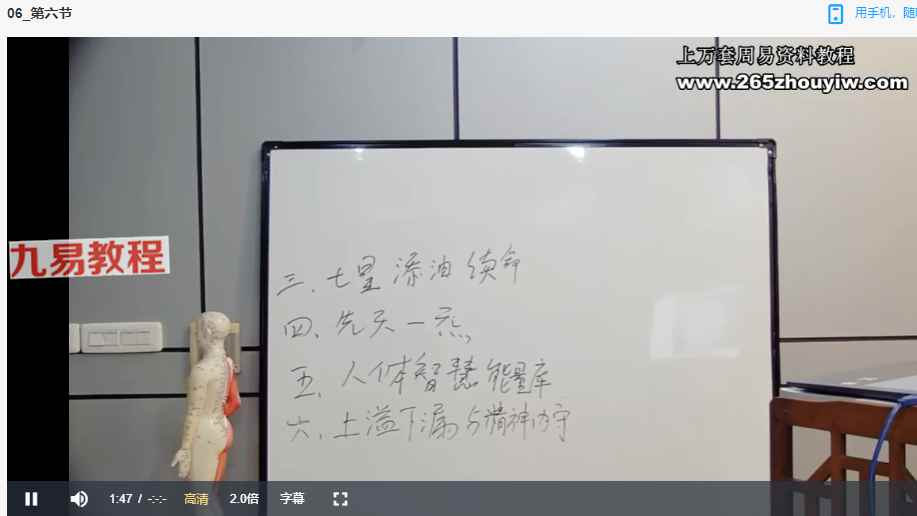 06_第六节
用手机，随
上万套周易资料教程
www.265zhouyiw.com
九易教程
三、七星添油续命
四、先天一炁
五、人体智慧能量库
六、上溢下漏与精神内守
1:47 / -:-:-
高清
2.0倍
字幕